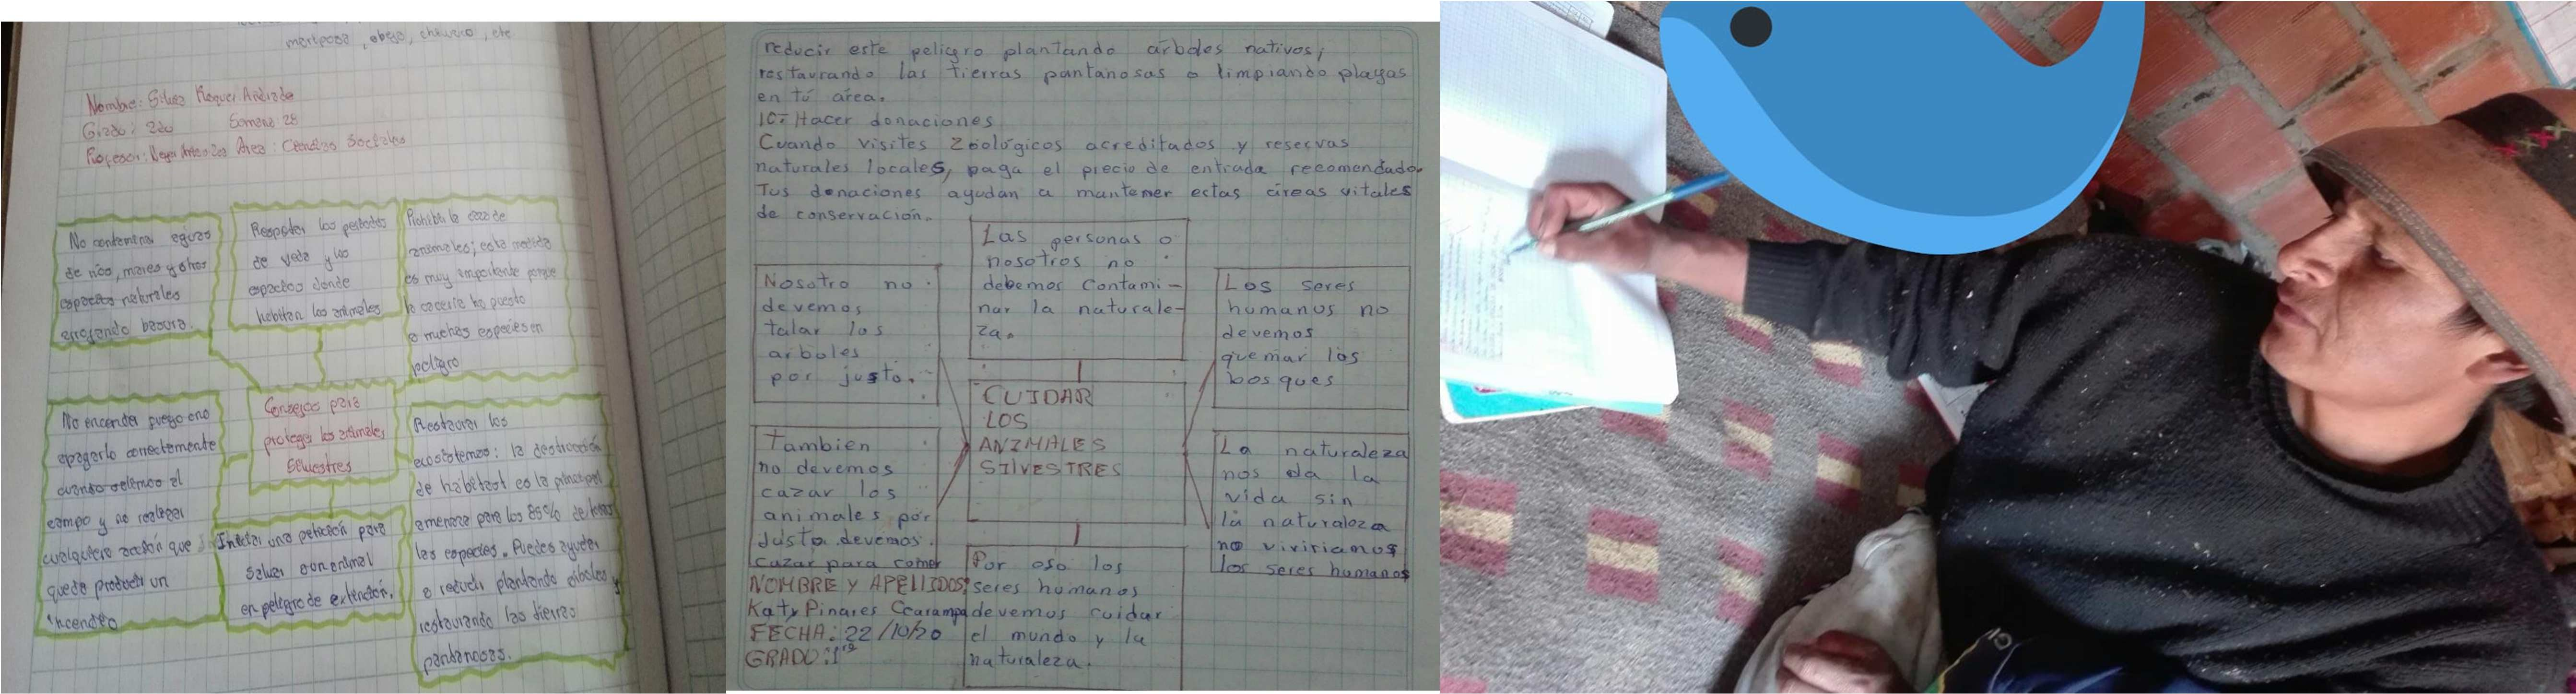 mariposa, abeja, churrico, etc
Nombre: Raquel Andrade
Grado: 2do Semana 28
Profesor: Area: Ciencias Sociales
No contaminar aguas
de ríos, mares y otros
espacios naturales
arrojando basura.
Respetar los periodos
de veda y los
espacios donde
habitan los animales
Prohibir la caza de
animales; esta medida
es muy importante porque
la cacería ha puesto
a muchas especies en
peligro
No encender fuego o no
apagarlo correctamente
cuando salimos al
campo y no realizar
cualquiera acción que
queda producir un
incendio
Consejos para
proteger los animales
Silvestres
Iniciar una petición para
salvar a un animal
en peligro de extinción.
Restaurar los
ecosistemas: la destrucción
de hábitat es la principal
amenaza para los 85% de todas
las especies. Puedes ayudar
a reducir plantando árboles y
restaurando las tierras
pantanosas.
reducir este peligro plantando arboles nativos,
restaurando las tierras pantanosas o limpiando playas
en tú área.
10- Hacer donaciones
Cuando visites Zoológicos acreditados y reservas
naturales locales, paga el precio de entrada recomendado.
Tus donaciones ayudan a mantemer estas áreas vitales
de conservación.
Las personas o
nosotros no
debemos contami-
nar la naturale-
za.
Nosotro no
devemos
talar los
arboles
por justo.
Los seres
humanos no
devemos
quemar los
bosques
CUIDAR
LOS
ANIMALES
SILVESTRES
Tambien
no devemos
cazar los
animales por
Justo devemos.
cazar para comer
La naturaleza
nos da la
vida sin
la naturaleza
no viviriamos
los seres humanos
Por eso los
seres humanos
devemos cuidar
el mundo y la
naturaleza.
NOMBRE Y APELLIDOS:
Katy Pinares Ccarampa
FECHA: 22/10/20
GRADO: 1ro